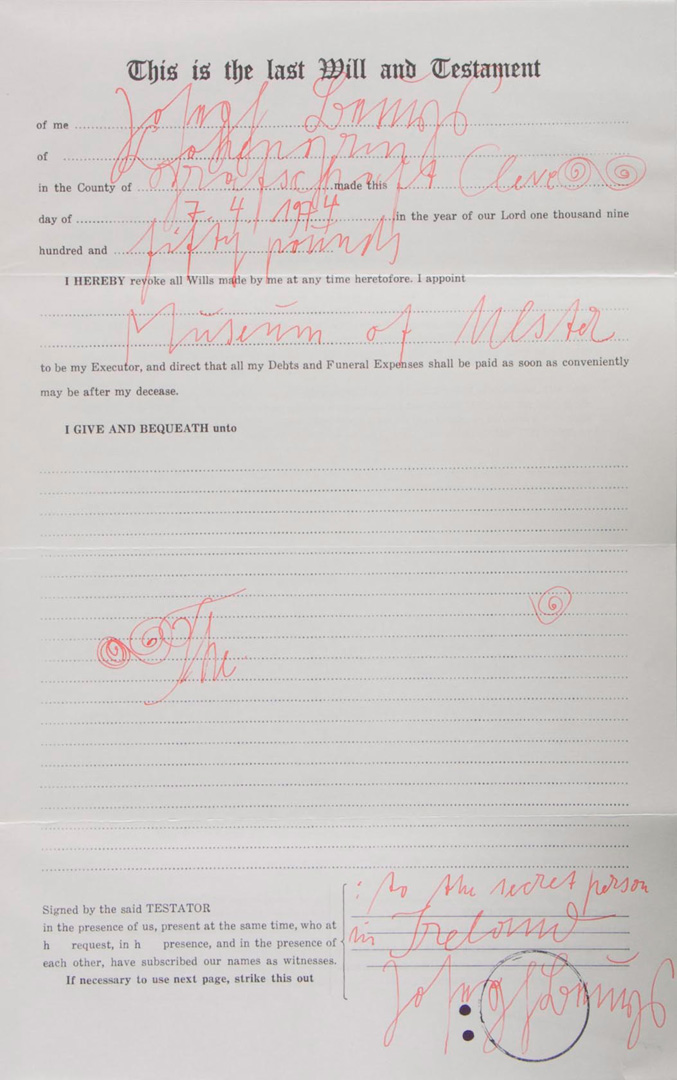 This is the last Will and Testament
of me Joseph Beuys
of Lohengrin
in the County of Grafschaft made this Cleve
day of 7. 4 1974 in the year of our Lord one thousand nine
hundred and fifty pounds
I HEREBY revoke all Wills made by me at any time heretofore. I appoint
Museum of Ulster
to be my Executor, and direct that all my Debts and Funeral Expenses shall be paid as soon as conveniently
may be after my decease.
I GIVE AND BEQUEATH unto
The
: to the secret person
in Ireland
Joseph Beuys
Signed by the said TESTATOR
in the presence of us, present at the same time, who at
h request, in h presence, and in the presence of
each other, have subscribed our names as witnesses.
If necessary to use next page, strike this out